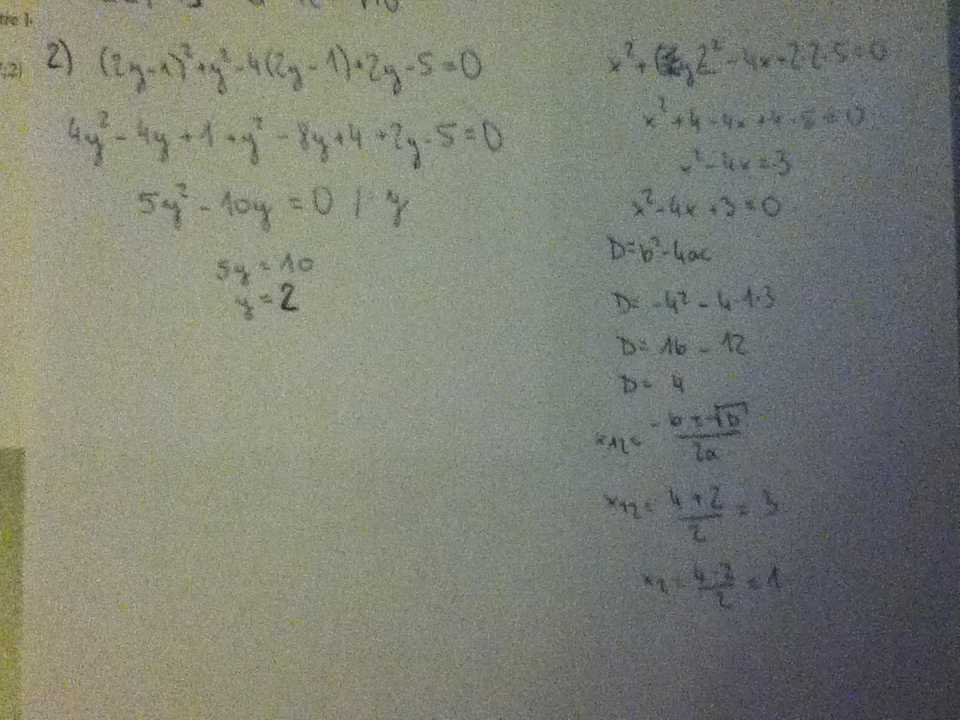 tre l.
,2)
2) (2y-1)²+y²-4(2y-1)+2y-5=0
4y²-4y+1+y²-8y+4+2y-5=0
5y²-10y=0 / y
5y=10
y=2
x²+4-4x+4-5=0
x²-4x=-3
x²-4x+3=0
D=b²-4ac
D=-4²-4·1·3
D=16-12
D=4
x12= -b±√D / 2a
x12= 4+2 / 2 = 3
x2= 4-2 / 2 = 1